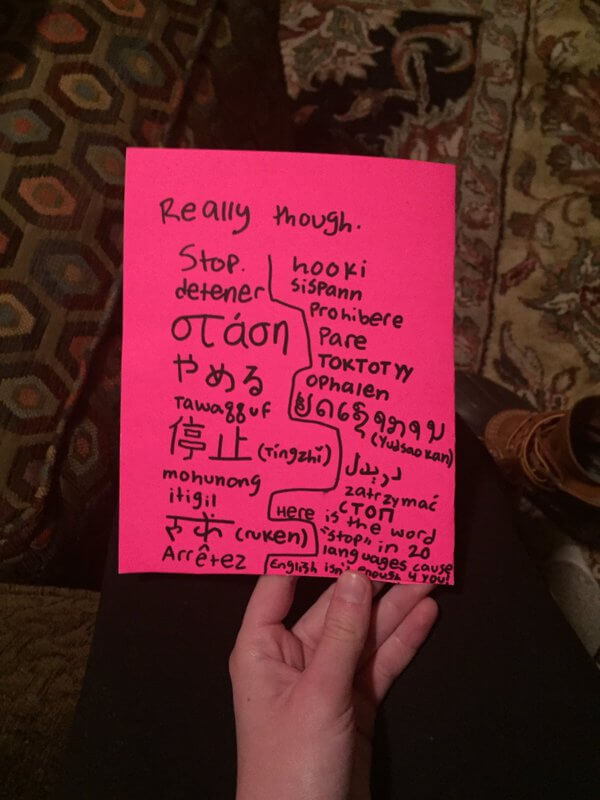 Really though.
Stop.
detener
στάση
やめる
Tawaqquf
停止 (Tíngzhǐ)
mohunong
itigil
(ruken)
Arrêtez
hooki
sispann
Prohibere
Pare
ТОКТОТУУ
ophalen
(Yudsaokan)
دريدل
zatrzymać
СТОП
Here is the word
"stop" in 20
languages cause
English isn't enough 4 you!